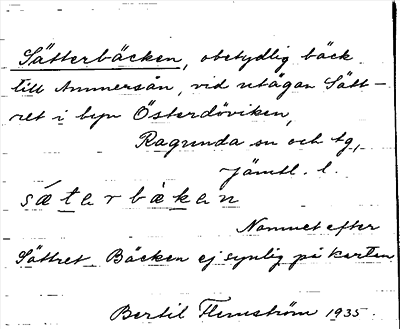 Sätterbäcken, obetydlig bäck
till Ammersån, vid utägan Sätt-
ret i byn Österdöviken,
Ragunda sn och tg,
Jämtl. l.
sǽterbæken
Namnet efter
Sättret. Bäcken ej synlig på kartan
Bertil Flemström 1935.